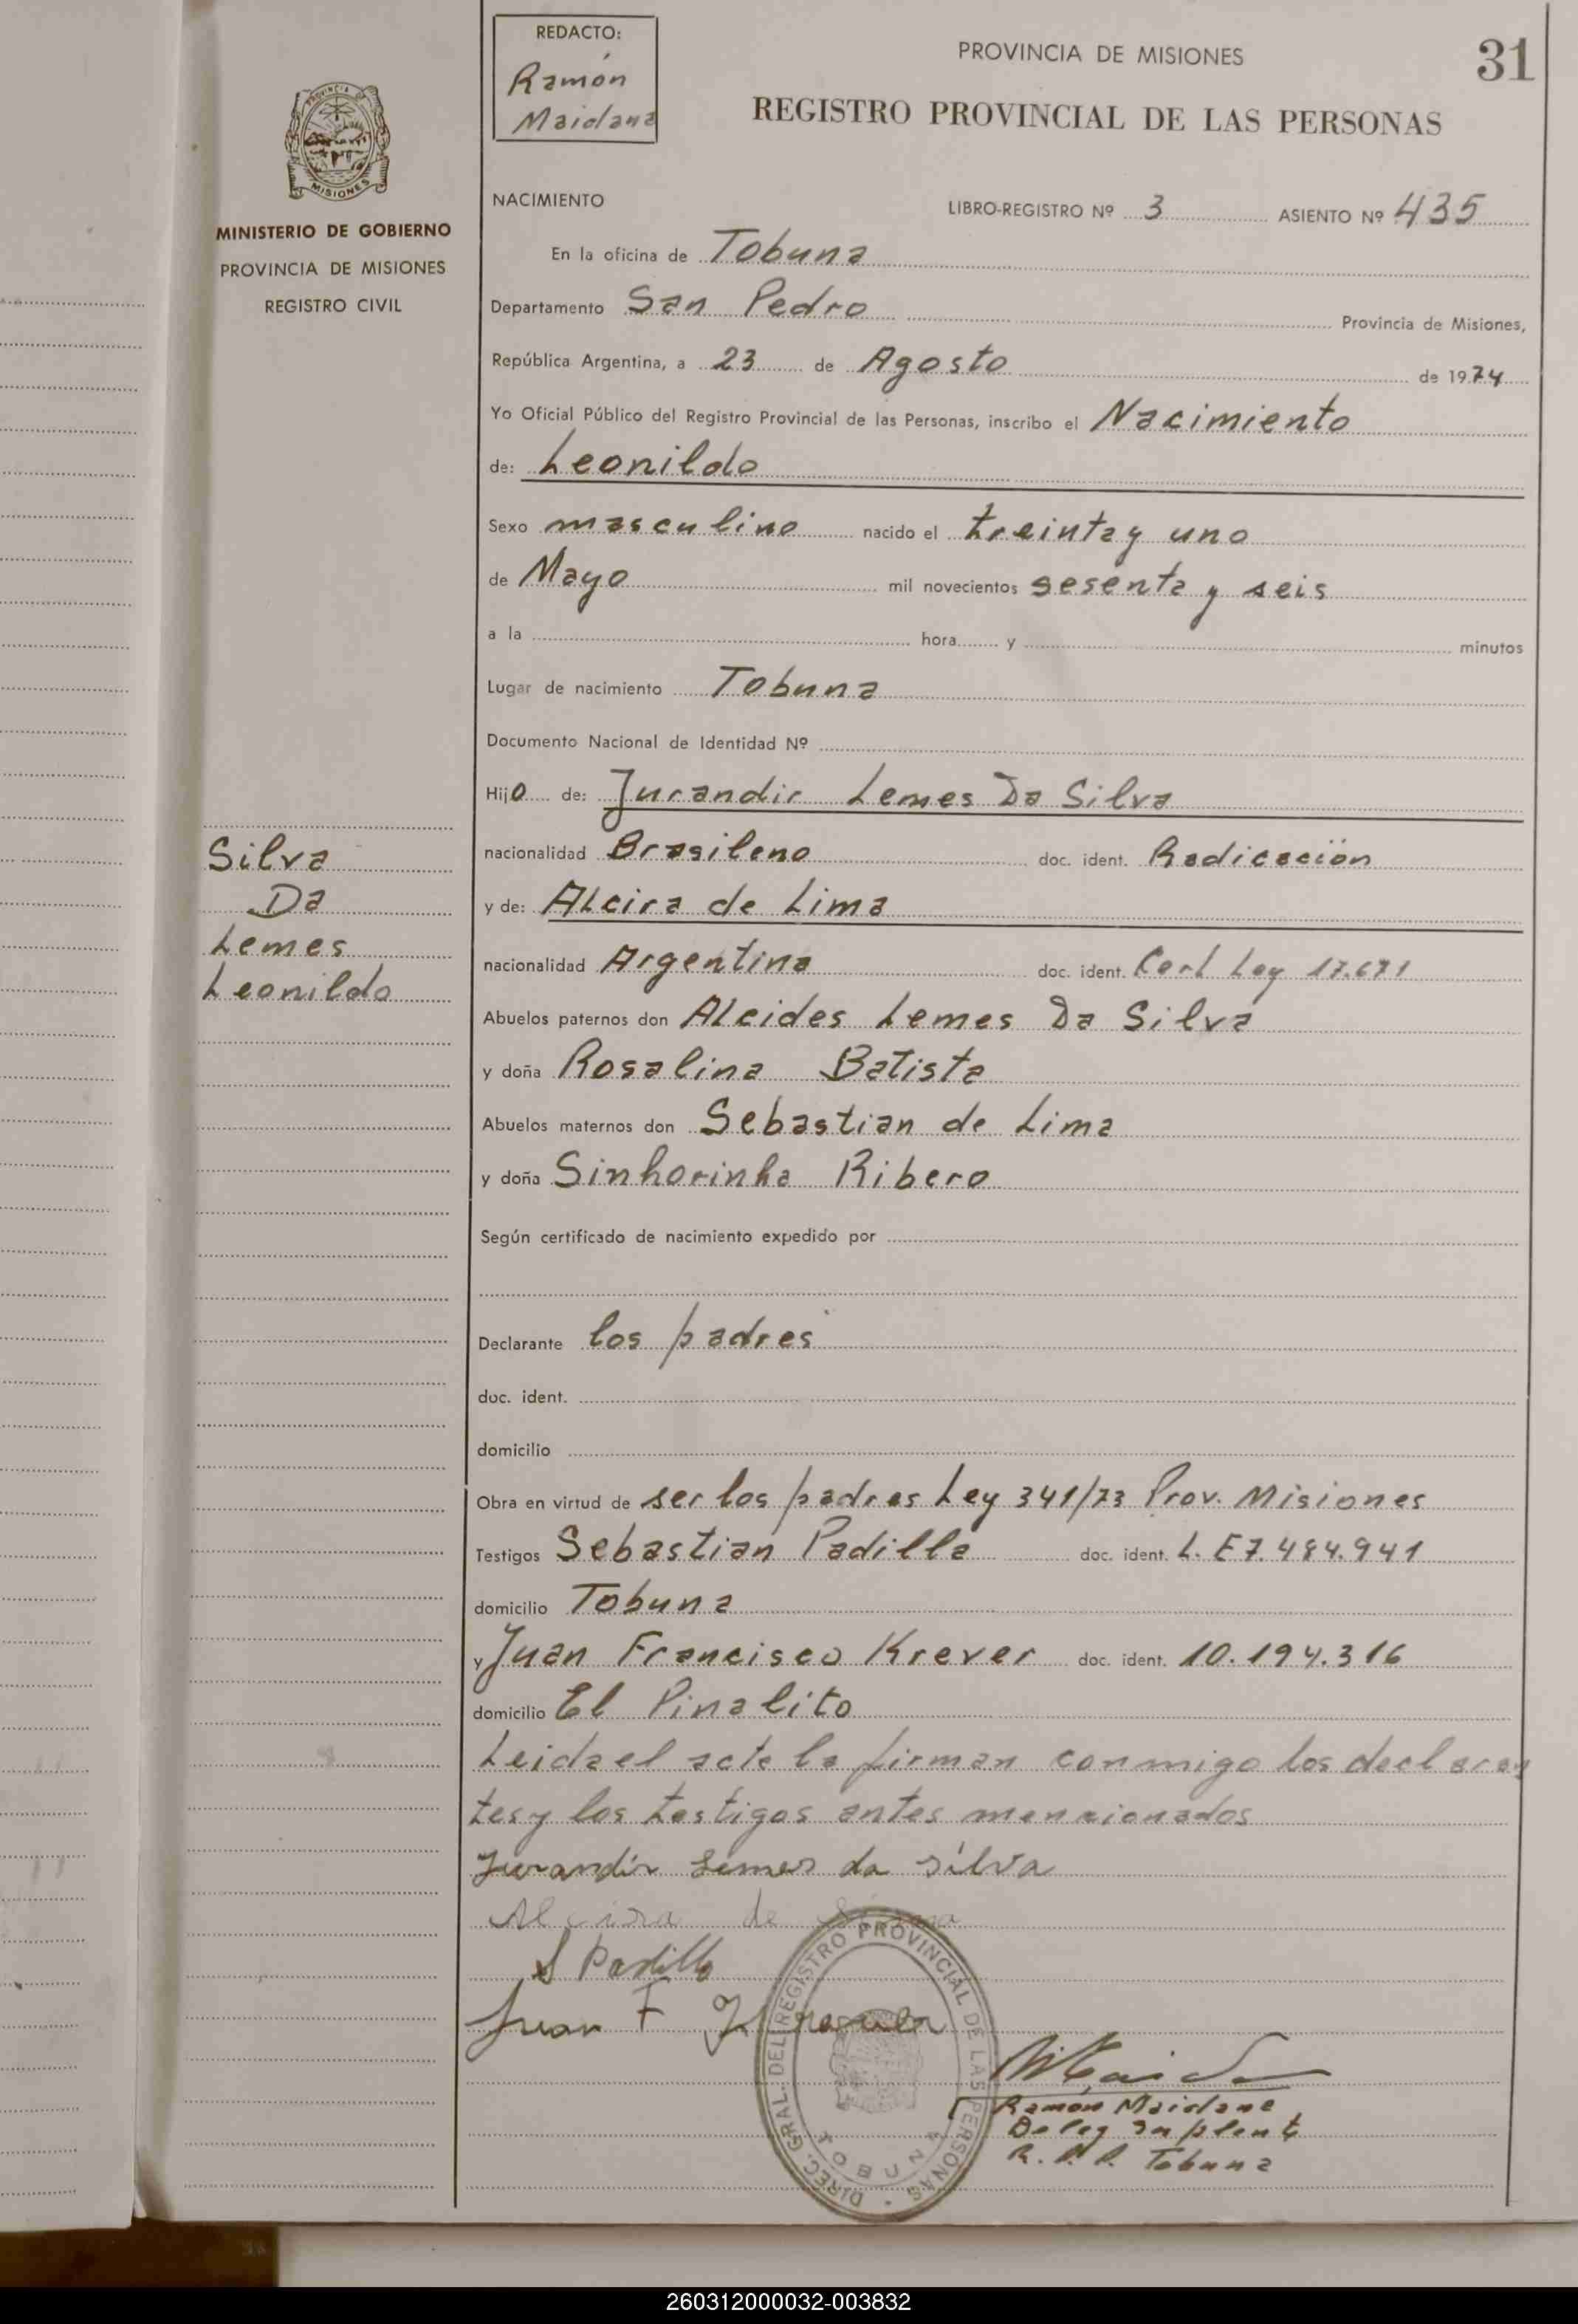 REDACTO:
Ramón
Maidana
PROVINCIA DE MISIONES
31
REGISTRO PROVINCIAL DE LAS PERSONAS
PROVINCIA DE
MISIONES
MINISTERIO DE GOBIERNO
PROVINCIA DE MISIONES
REGISTRO CIVIL
NACIMIENTO
LIBRO-REGISTRO Nº 3 ASIENTO Nº 435
En la oficina de Tobuna
Departamento San Pedro Provincia de Misiones,
República Argentina, a 23 de Agosto de 1974
Yo Oficial Público del Registro Provincial de las Personas, inscribo el Nacimiento
de: Leonildo
Sexo masculino nacido el treinta y uno
de Mayo mil novecientos sesenta y seis
a la hora y minutos
Lugar de nacimiento Tobuna
Documento Nacional de Identidad Nº
Hijo de: Jurandir Lemes Da Silva
nacionalidad Brasileno doc. ident. Radicación
y de: Alcira de Lima
nacionalidad Argentina doc. ident. Cert Ley 17.671
Abuelos paternos don Alcides Lemes Da Silva
y doña Rosalina Batista
Abuelos maternos don Sebastian de Lima
y doña Sinhorinha Ribero
Según certificado de nacimiento expedido por
Declarante los padres
doc. ident.
domicilio
Obra en virtud de ser los padres Ley 341/73 Prov. Misiones
Testigos Sebastian Padilla doc. ident. L. E 7.484.941
domicilio Tobuna
y Juan Francisco Krever doc. ident. 10.194.316
domicilio El Pinalito
Leida el acta la firman conmigo los declaran
tes y los testigos antes mencionados
Jurandir Lemes da silva
Alcira de Lima
S Padilla
Juan F
Ramón Maidana
Deleg Suplent
R. P. P. Tobuna
DIREC. GRAL. DEL REGISTRO PROVINCIAL DE LAS PERSONAS
TOBUNA
Silva
Da
Lemes
Leonildo
260312000032-003832